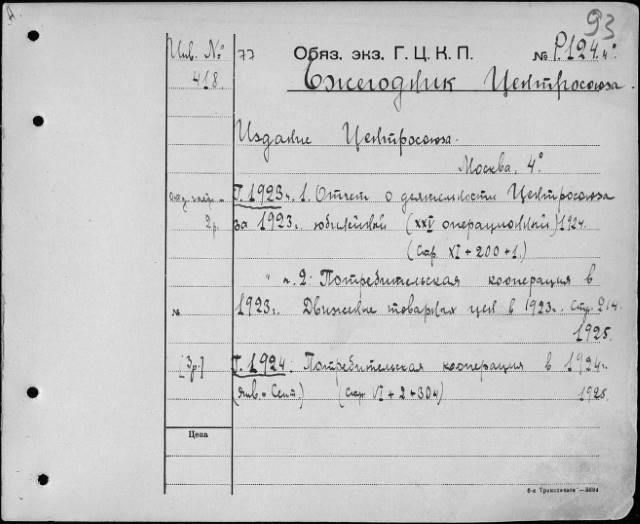 93
Инв. № 77 Обяз. экз. Г. Ц. К. П. № Р.124.4°
418 Ежегодник Центросоюза.
Издание Центросоюза.
Москва. 4°
Г. 1923 ч. 1. Отчет о деятельности Центросоюза
2 р. за 1923 г. юбилейный (XXV операционный) 1924.
(Стр. XI + 200 + 1.)
" ч. 2: Потребительская кооперация в
№ 1923 г. Движение товарных цен в 1923 г. Стр. 214
1925.
[3 р.] Г. 1924: Потребительская кооперация в 1924 г.
(Янв. - Сент.) (Стр. VI + 2 + 304) 1925.
Цена
6-я Транспечати —3694